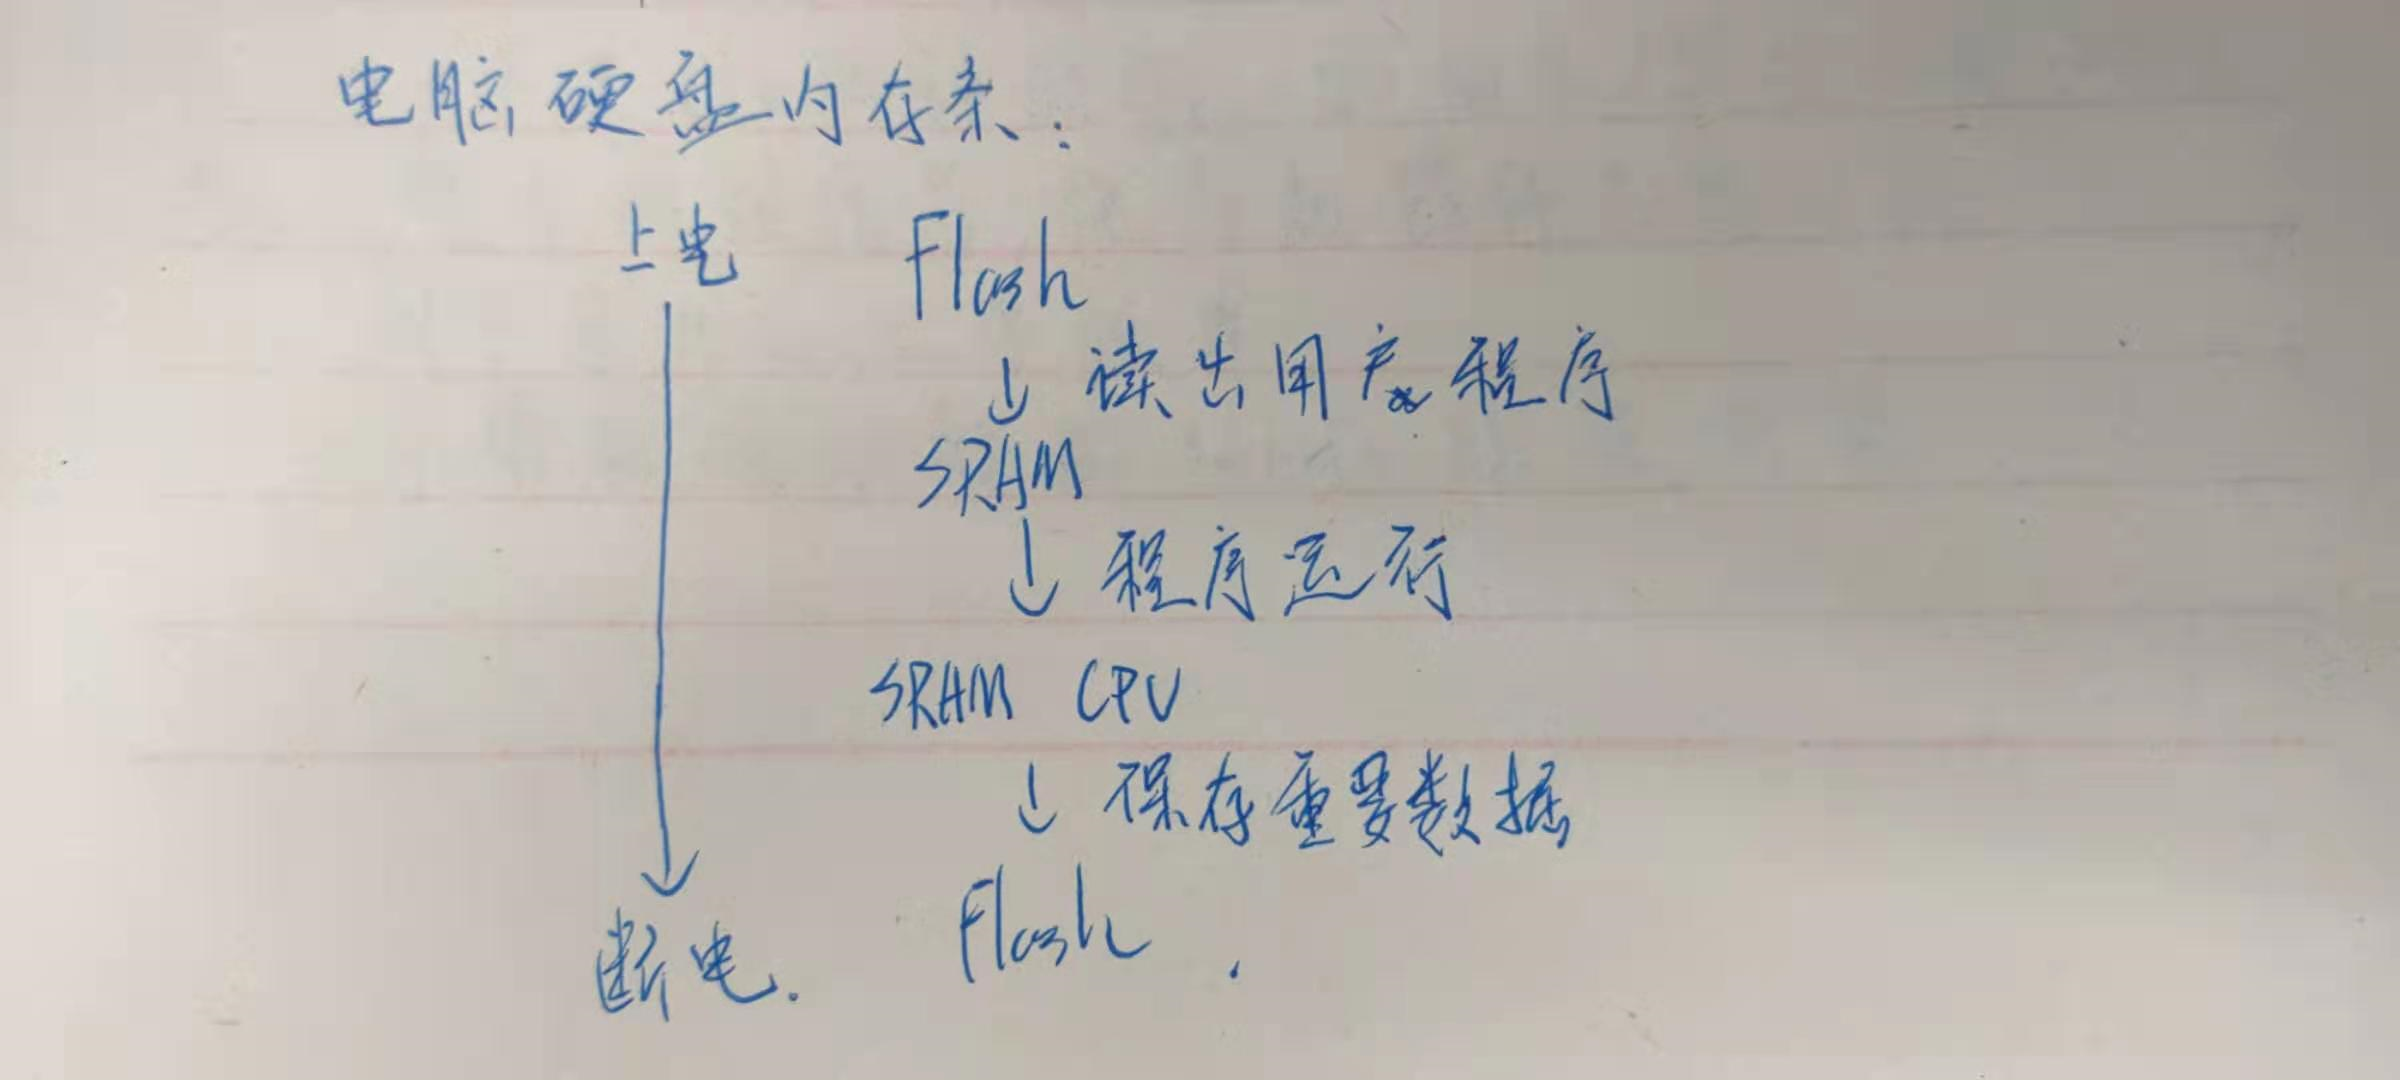 电脑硬盘内存条:
上电 Flash
↓ 读出用户程序
SRAM
↓ 程序运行
SRAM CPU
↓ 保存重要数据
断电. Flash .